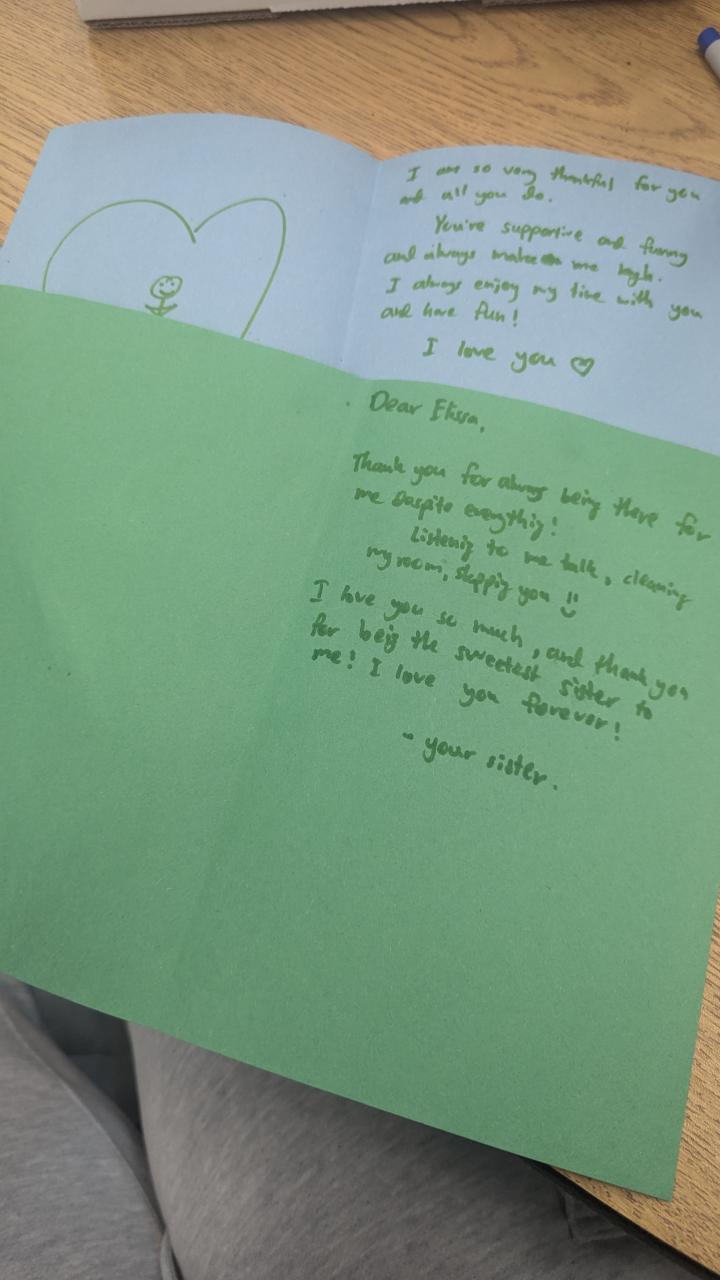 I am so very thankful for you
and all you do.
You're supportive and funny
and always make me laugh.
I always enjoy my time with you
and have fun!
I love you ♡
Dear Elissa,
Thank you for always being there for
me Despite everything!
Listening to me talk, cleaning
my room, slapping you
I love you so much, and thank you
for being the sweetest sister to
me! I love you forever!
- your sister.